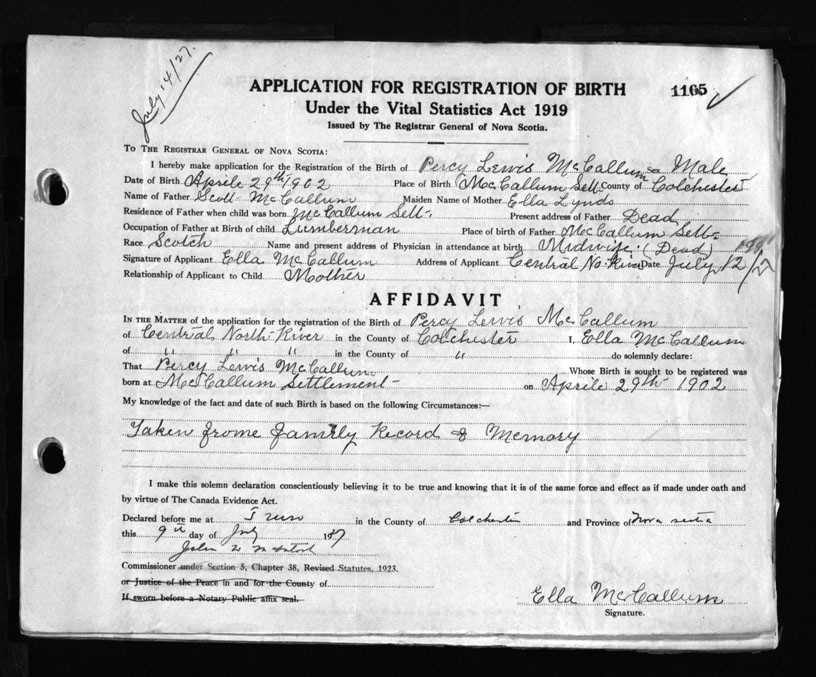 July 14/27.
APPLICATION FOR REGISTRATION OF BIRTH 1165
Under the Vital Statistics Act 1919
Issued by The Registrar General of Nova Scotia.
TO THE REGISTRAR GENERAL OF NOVA SCOTIA:
I hereby make application for the Registration of the Birth of Percy Lewis McCallum Sex Male
Date of Birth Aprile 29th 1902 Place of Birth McCallum Sett County of Colchester
Name of Father Scott McCallum Maiden Name of Mother Ella Lynds
Residence of Father when child was born McCallum Sett Present address of Father Dead
Occupation of Father at Birth of child Lumberman Place of birth of Father McCallum Sett
Race Scotch Name and present address of Physician in attendance at birth Midwife (Dead)
Signature of Applicant Ella McCallum Address of Applicant Central No. River Date July 12/27
Relationship of Applicant to Child Mother
AFFIDAVIT
IN THE MATTER of the application for the registration of the Birth of Percy Lewis McCallum
of Central North River in the County of Colchester I, Ella McCallum
of " " " in the County of " do solemnly declare:
That Percy Lewis McCallum Whose Birth is sought to be registered was
born at McCallum Settlement on Aprile 29th 1902
My knowledge of the fact and date of such Birth is based on the following Circumstances:—
Taken Frome Family Record & Memory
I make this solemn declaration conscientiously believing it to be true and knowing that it is of the same force and effect as if made under oath and
by virtue of The Canada Evidence Act.
Declared before me at Truro in the County of Colchester and Province of Nova Scotia
this 9th day of July 1927
John
Commissioner under Section 5, Chapter 38, Revised Statutes, 1923.
or Justice of the Peace in and for the County of
If sworn before a Notary Public affix seal.
Ella McCallum
Signature.